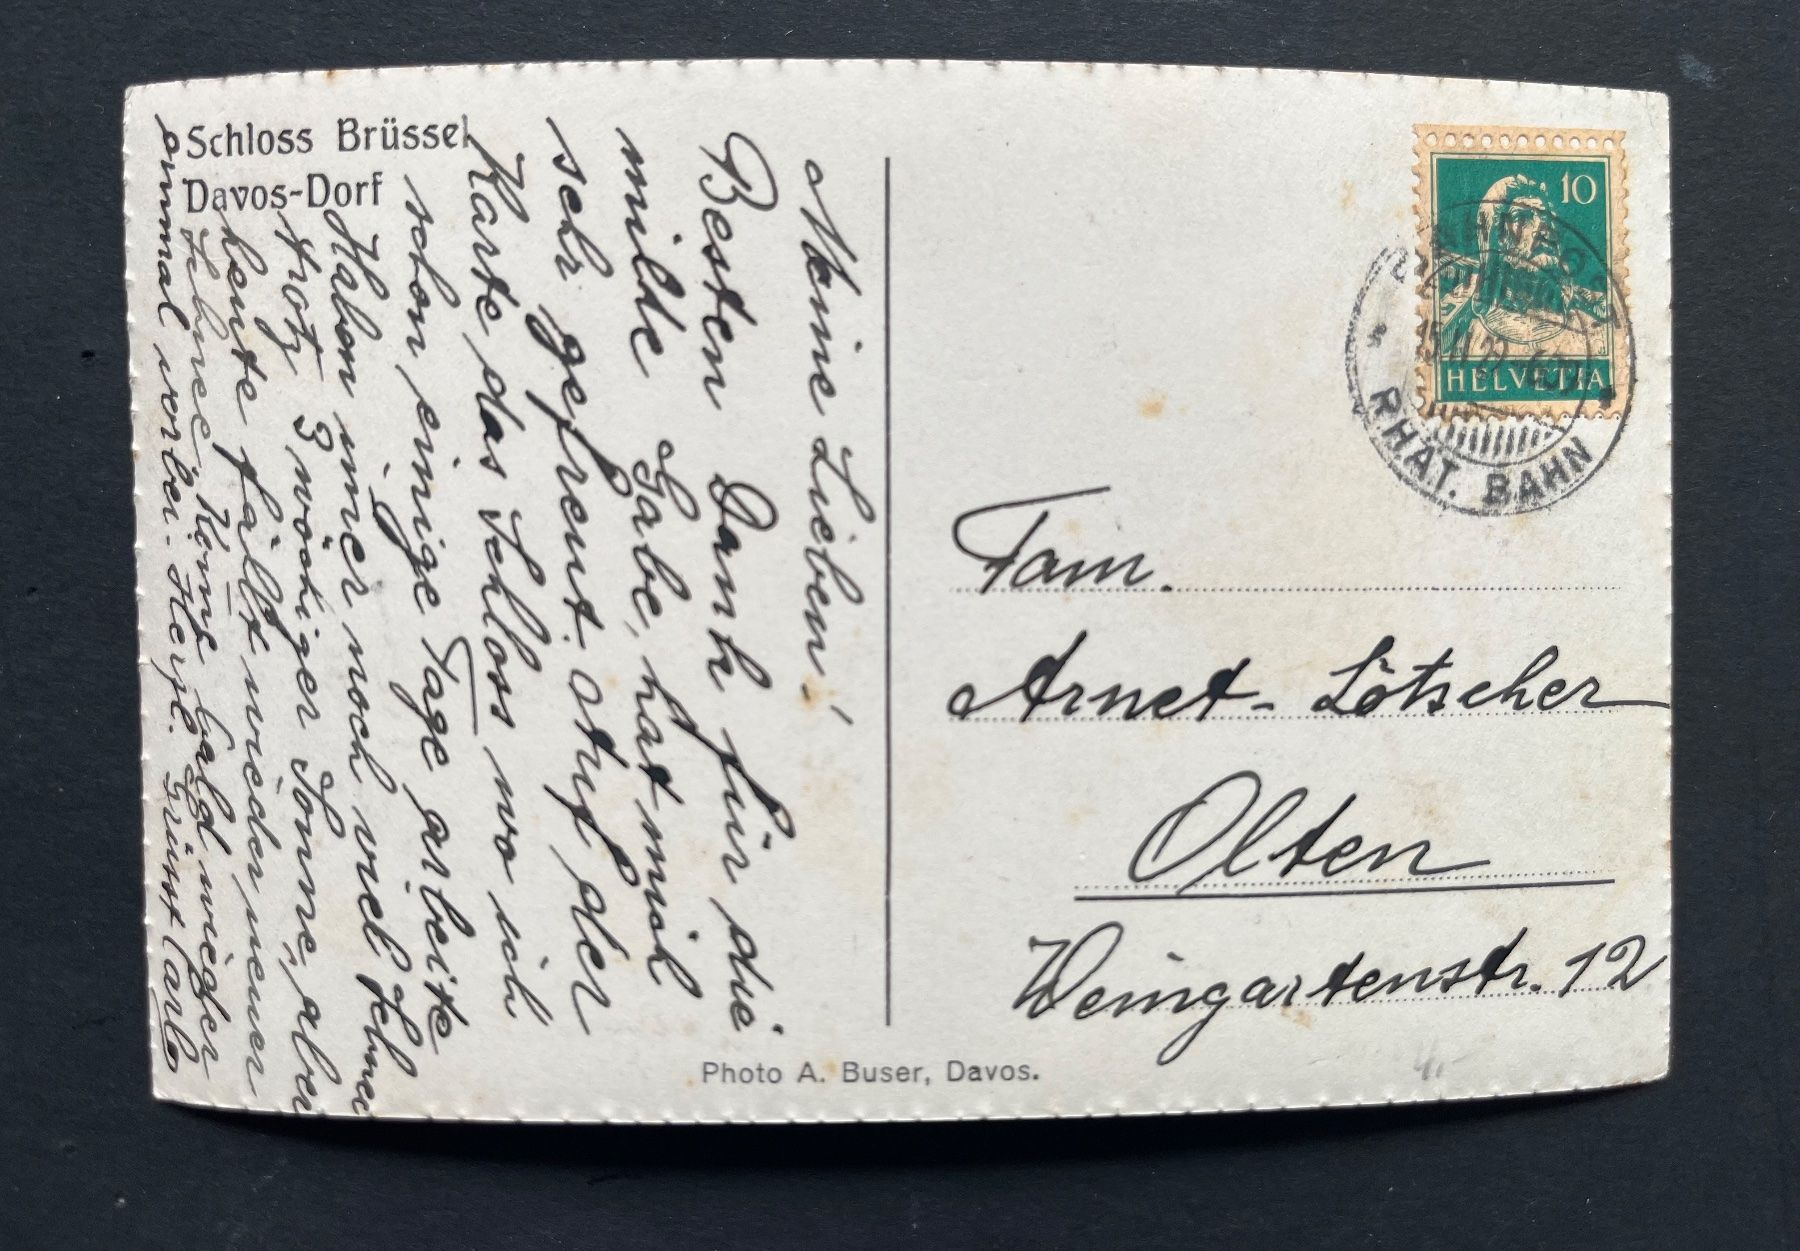 Schloss Brüssel
Davos-Dorf
Meine Lieben!
Besten Dank für die
milde Gabe, hat mich
sehr gefreut. Auf der
Karte das Schloss wo ich
schon einige Tage arbeite
Haben imer noch viel Schnee
trotz 3 wöchiger Sonne, aber
heute fällt wieder neuer
Schnee, Komt bald wieder
einmal vorbei. Herzl. Grüsst Carlo
10
HELVETIA
BAHNPOST
RHÄT. BAHN
Fam.
Arnet-Lötscher
Olten
Weingartenstr. 12
Photo A. Buser, Davos.
4.-